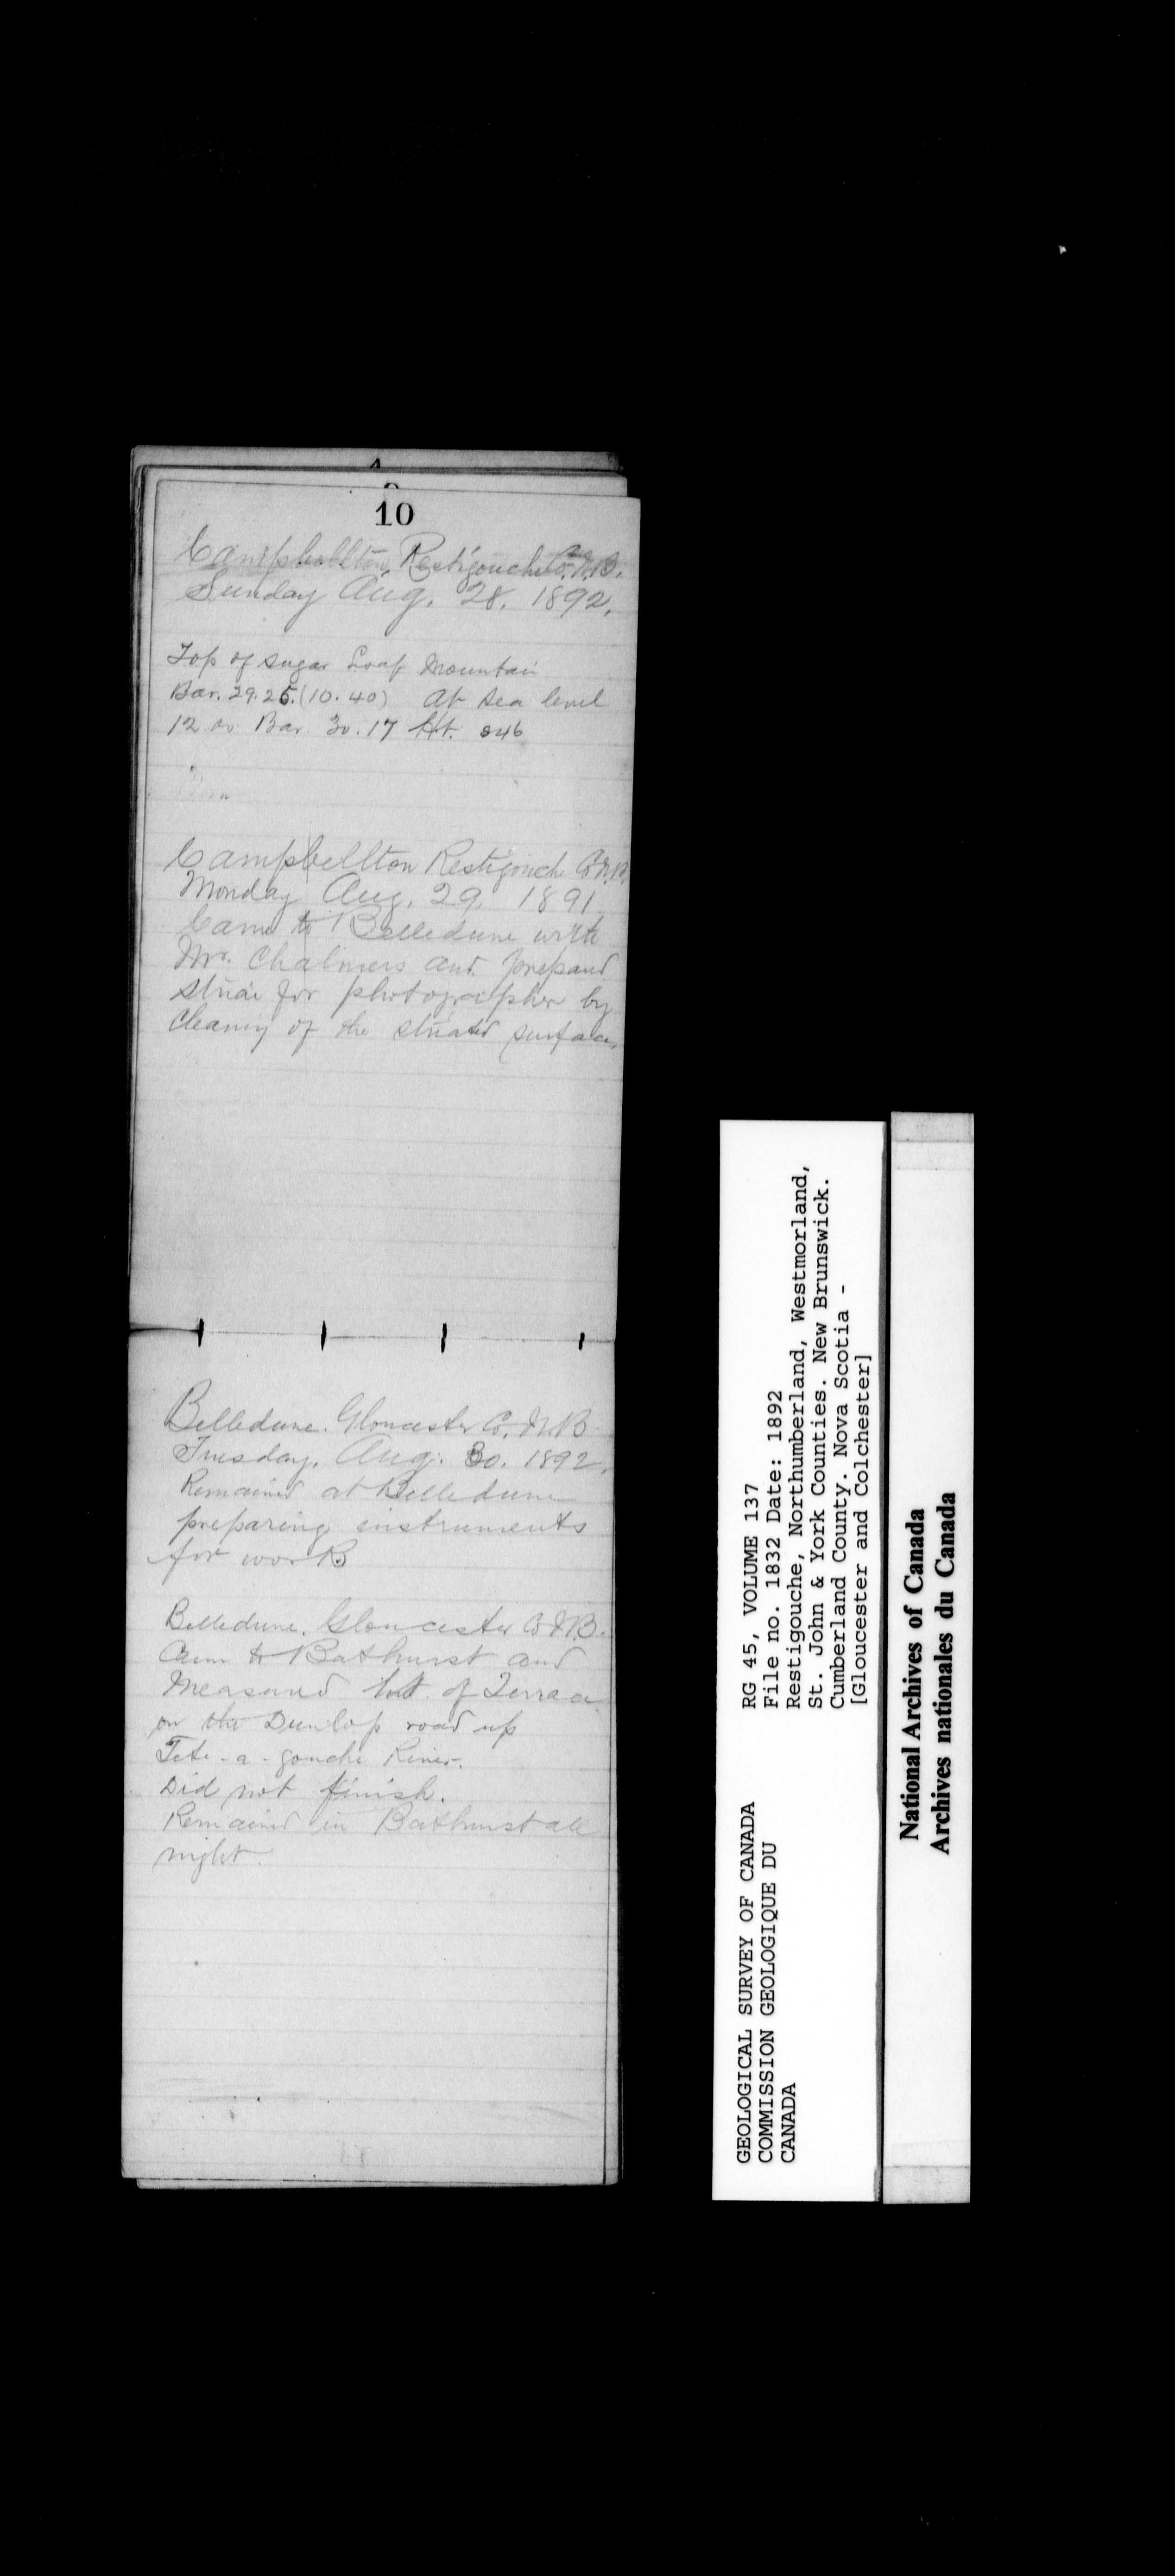 10
Campbellton, Restigouche Co. N.B.
Sunday Aug. 28. 1892.
Top of Sugar Loaf Mountain
Bar. 29.25. (10.40) At sea level
12 Bar 30.17 Ht. 846
Campbellton Restigouche Co. N.B.
Monday Aug. 29, 1891
Came to Belledune with
Mr. Chalmers and prepared
striae for photographer by
cleaning of the striated surface.
Belledune. Gloucester Co. N.B
Tuesday. Aug. 30. 1892.
Remained at Belledune
preparing instruments
for work.
Belledune. Gloucester Co N.B.
Came to Bathurst and
Measured ht. of Terrace
on the Dunlop road up
Tete-a-gouche River.
Did not finish.
Remained in Bathurst all
night.
GEOLOGICAL SURVEY OF CANADA
COMMISSION GEOLOGIQUE DU
CANADA
RG 45, VOLUME 137
File no. 1832 Date: 1892
Restigouche, Northumberland, Westmorland,
St. John & York Counties. New Brunswick.
Cumberland County. Nova Scotia -
[Gloucester and Colchester]
National Archives of Canada
Archives nationales du Canada